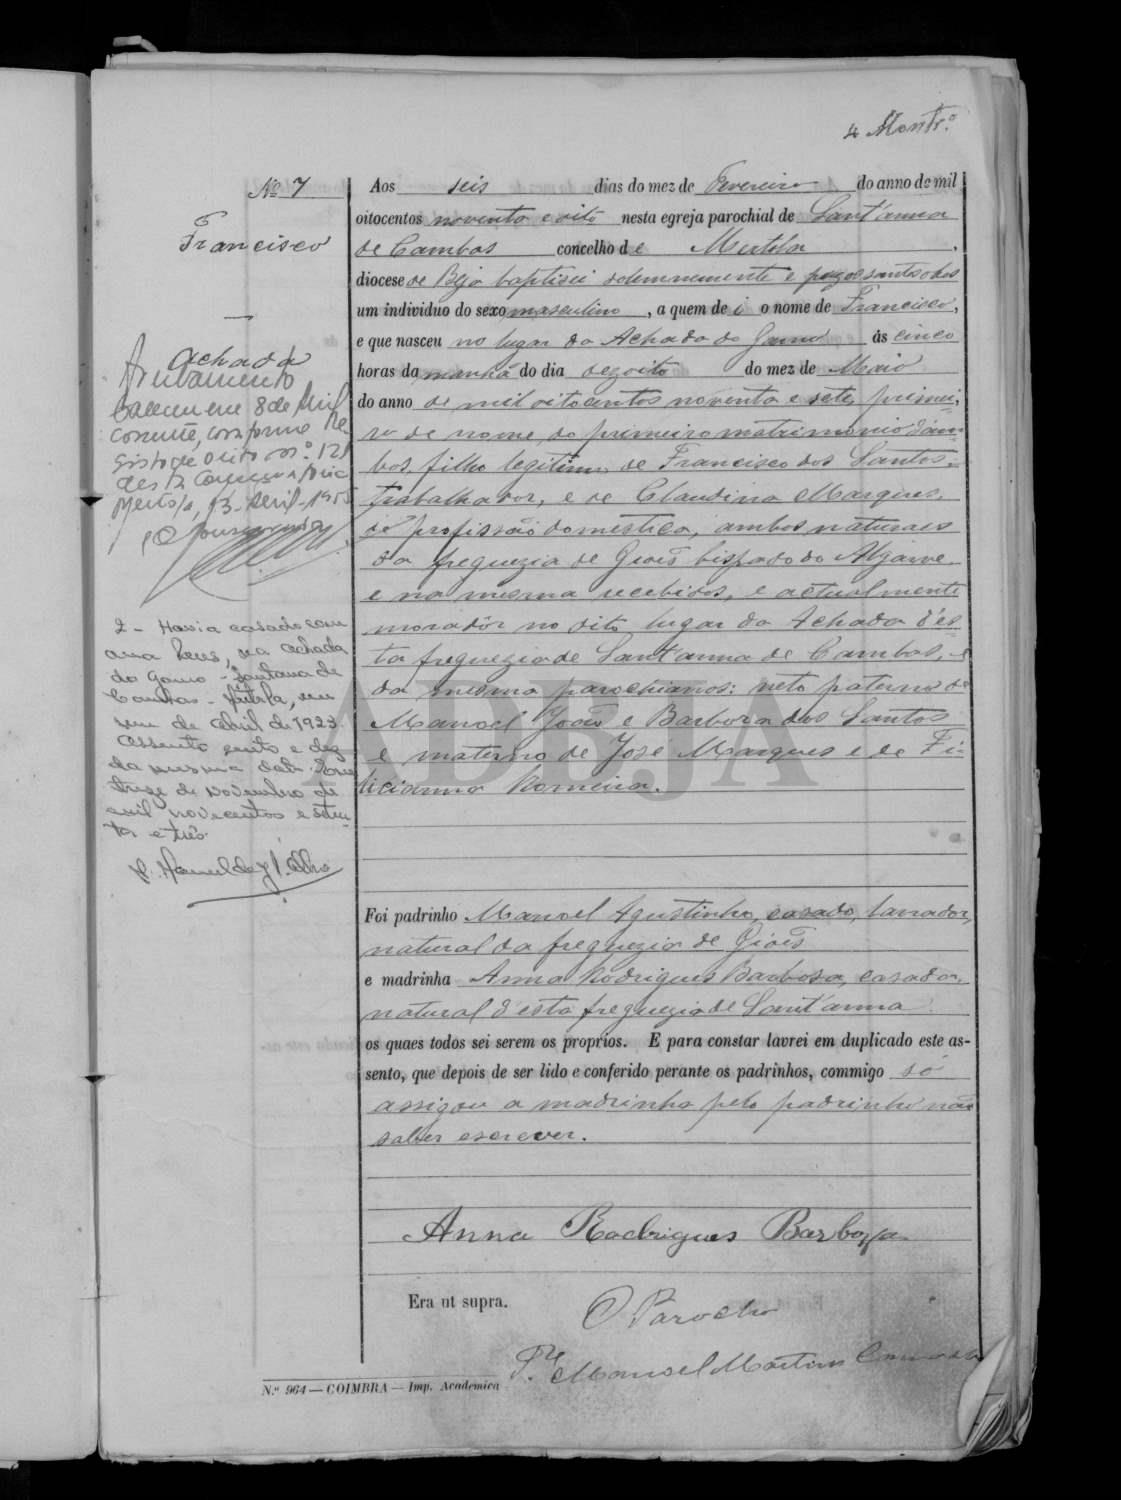 4 Montr.º
Nº 7
Francisco
Achada
Aos seis dias do mez de Fevereiro do anno de mil
oitocentos noventa e oito nesta egreja parochial de Sant'anna
de Cambas concelho de Mertola,
diocese de Beja baptisei solemnemente e puz os santos oleos
um individuo do sexo masculino, a quem dei o nome de Francisco,
e que nasceu no lugar da Achada do Gamo ás cinco
horas da manhã do dia dezoito do mez de Maio
do anno de mil oitocentos noventa e sete, primei-
ro de nome, do primeiro matrimonio d'am-
bos, filho legitimo de Francisco dos Santos,
trabalhador, e de Claudina Marques,
de profissão domestica, ambos naturaes
da freguezia de Giões bispado do Algarve
e na mesma recebidos, e actualmente
morador no dito lugar da Achada d'es-
ta freguezia de Sant'anna de Cambas, e
da mesma parochianos: neto paterno de
Manoel João e Barbora dos Santos
e materno de José Marques e de Fi-
licianna Romeira.
Foi padrinho Manoel Agustinho, casado, lavrador,
natural da freguezia de Giões
e madrinha Anna Rodrigues Barbosa, casada,
natural d'esta freguezia de Sant'anna
os quaes todos sei serem os proprios. E para constar lavrei em duplicado este as-
sento, que depois de ser lido e conferido perante os padrinhos, commigo só
assigou a madrinha pelo padrinho não
saber escrever.
Anna Rodrigues Barboza
Era ut supra.
O Parocho
P.e Manoel Martins
N.º 964 — COIMBRA — Imp. Academica
Averbamento
Faleceu em 8 de Abril
corrente, conforme Re-
gisto de obito n.º 121
Mertola, 13-Abril-1955
2 - Havia casado com
na Achada
do Gamo - Santana de
Cambas - Mértola, em
de Abril de 1923.
Assento cento e dez
da mesma data.
treze de Novembro de
mil novecentos e seten-
ta e três.
ADBJA